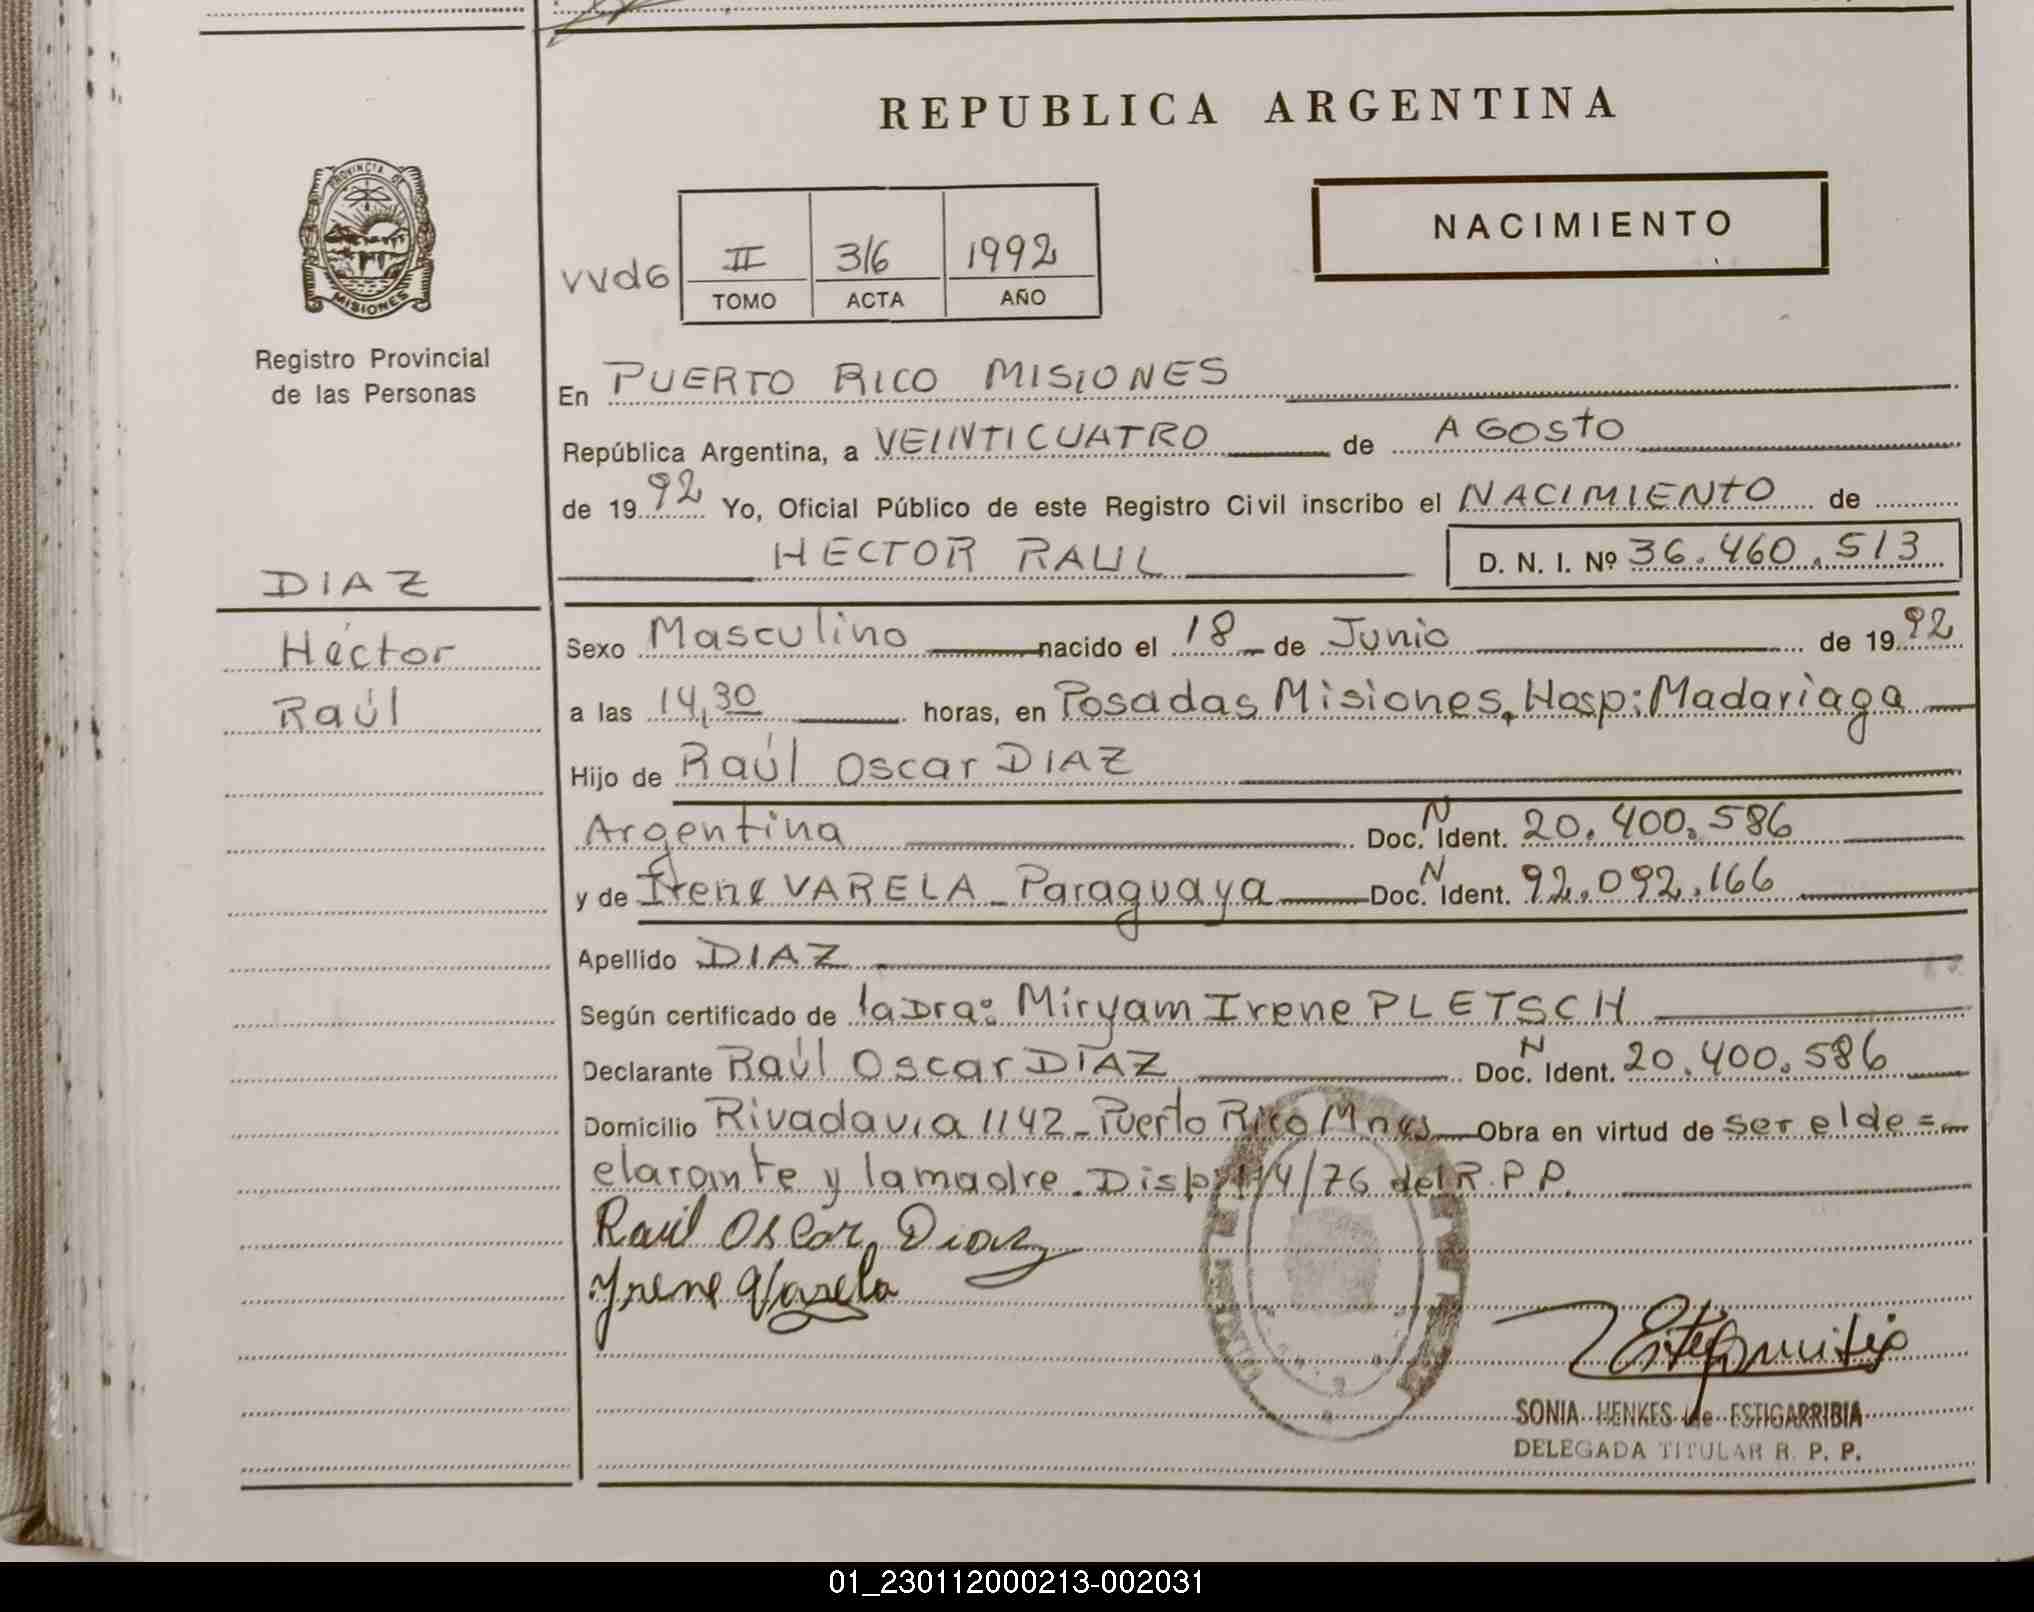 REPUBLICA ARGENTINA
PROVINCIA DE
MISIONES
Registro Provincial
de las Personas
NACIMIENTO
vvd6 II 316 1992
TOMO ACTA AÑO
En PUERTO RICO MISIONES
República Argentina, a VEINTICUATRO de AGOSTO
de 1992 Yo, Oficial Público de este Registro Civil inscribo el NACIMIENTO de
HECTOR RAUL D. N. I. Nº 36.460.513
DIAZ
Héctor
Raúl
Sexo Masculino nacido el 18 de Junio de 1992
a las 14,30 horas, en Posadas Misiones, Hosp: Madariaga
Hijo de Raúl Oscar DIAZ
Argentina Doc. N Ident. 20.400.586
y de Irene VARELA - Paraguaya Doc. N Ident. 92.092.166
Apellido DIAZ
Según certificado de la Dra: Miryam Irene PLETSCH
Declarante Raúl Oscar DÍAZ Doc. N Ident. 20.400.586
Domicilio Rivadavia 1142 - Puerto Rico Mnes Obra en virtud de ser el de=
clarante y la madre. Disp. 114/76 del R.P.P.
Raúl Oscar Diaz
Yrene Varela
SONIA HENKES de ESTIGARRIBIA
DELEGADA TITULAR R. P. P.
01_230112000213-002031